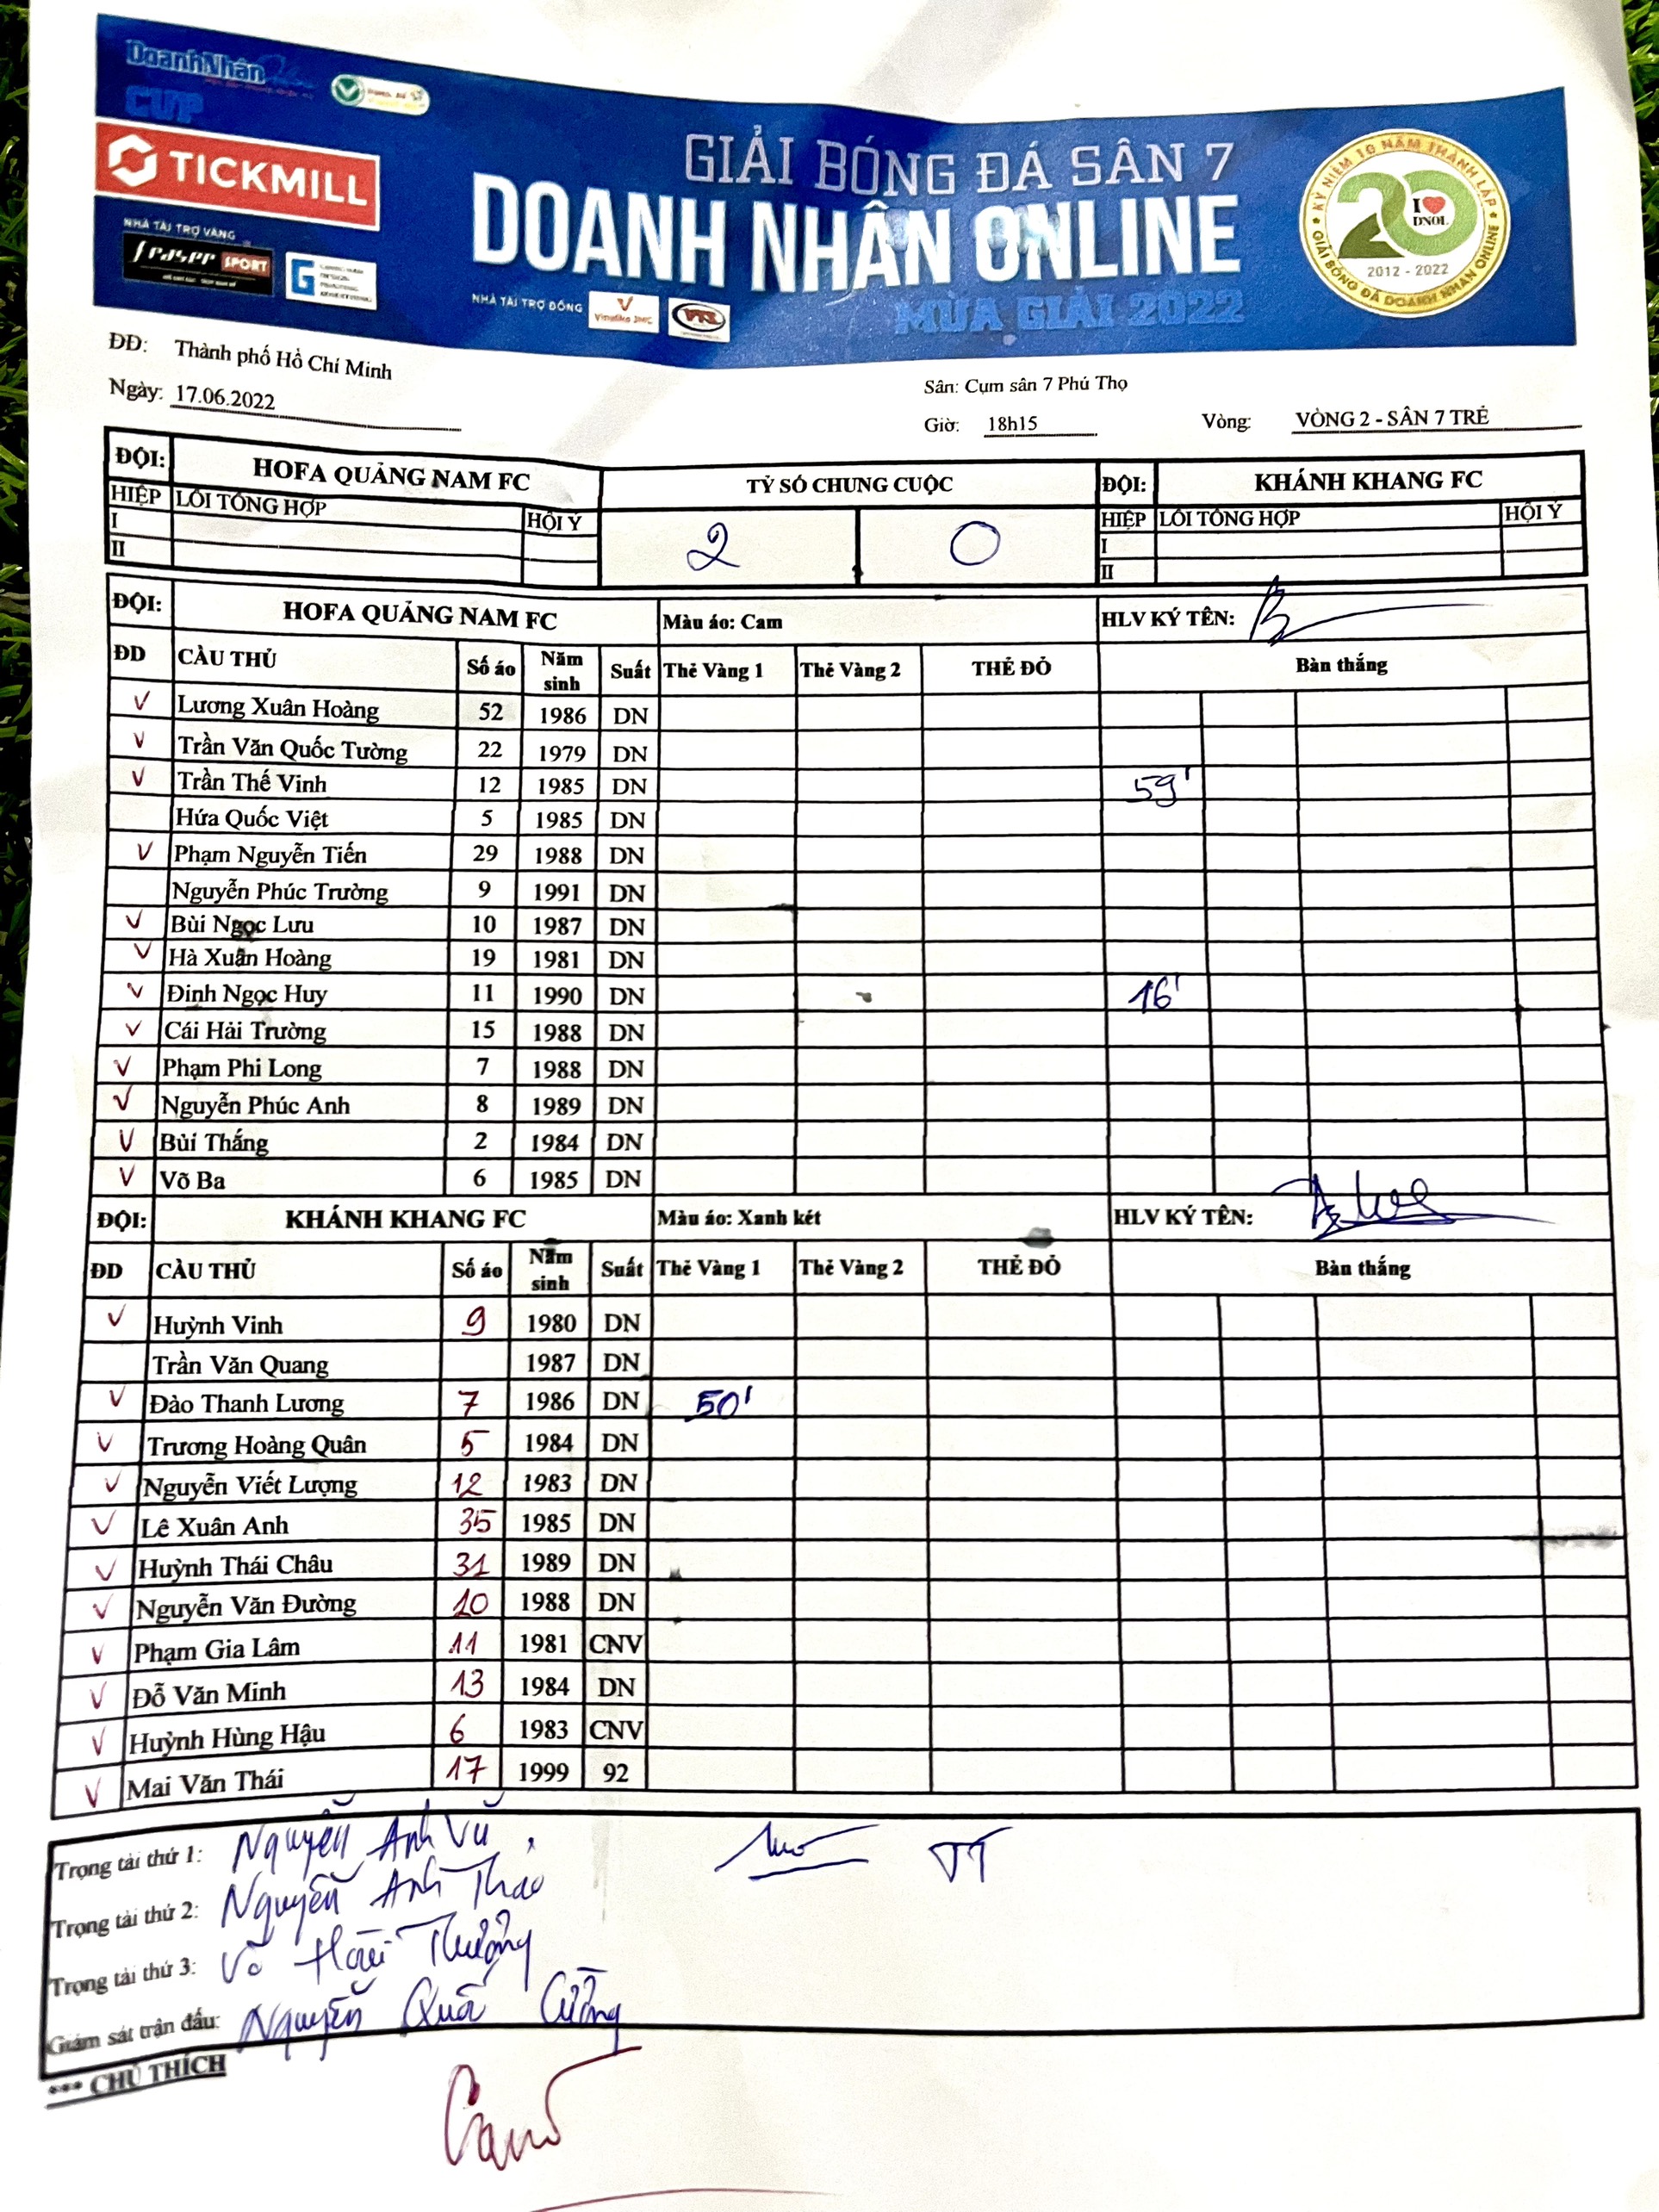 DoanhNhân
CUP
TICKMILL
NHÀ TÀI TRỢ VÀNG
SPORT
GIẢI BÓNG ĐÁ SÂN 7
DOANH NHÂN ONLINE
NHÀ TÀI TRỢ ĐỒNG
MÙA GIẢI 2022
KỶ NIỆM 10 NĂM THÀNH LẬP
I ❤ DNOL
2012 - 2022
GIẢI BÓNG ĐÁ DOANH NHÂN ONLINE
ĐĐ: Thành phố Hồ Chí Minh
Sân: Cụm sân 7 Phú Thọ
Ngày: 17.06.2022 Giờ: 18h15 Vòng: VÒNG 2 - SÂN 7 TRẺ
ĐỘI: HOFA QUẢNG NAM FC TỶ SỐ CHUNG CUỘC ĐỘI: KHÁNH KHANG FC
HIỆP LỖI TỔNG HỢP HỘI Ý 2 0 HIỆP LỖI TỔNG HỢP HỘI Ý
I I
II II
ĐỘI: HOFA QUẢNG NAM FC Màu áo: Cam HLV KÝ TÊN:
ĐD CẦU THỦ Số áo Năm sinh Suất Thẻ Vàng 1 Thẻ Vàng 2 THẺ ĐỎ Bàn thắng
✓ Lương Xuân Hoàng 52 1986 DN
✓ Trần Văn Quốc Tường 22 1979 DN
✓ Trần Thế Vinh 12 1985 DN 59'
Hứa Quốc Việt 5 1985 DN
✓ Phạm Nguyễn Tiến 29 1988 DN
Nguyễn Phúc Trường 9 1991 DN
✓ Bùi Ngọc Lưu 10 1987 DN
✓ Hà Xuân Hoàng 19 1981 DN
✓ Đinh Ngọc Huy 11 1990 DN 16'
✓ Cái Hải Trường 15 1988 DN
✓ Phạm Phi Long 7 1988 DN
✓ Nguyễn Phúc Anh 8 1989 DN
✓ Bùi Thắng 2 1984 DN
✓ Võ Ba 6 1985 DN
ĐỘI: KHÁNH KHANG FC Màu áo: Xanh két HLV KÝ TÊN:
ĐD CẦU THỦ Số áo Năm sinh Suất Thẻ Vàng 1 Thẻ Vàng 2 THẺ ĐỎ Bàn thắng
✓ Huỳnh Vinh 9 1980 DN
Trần Văn Quang 1987 DN
✓ Đào Thanh Lương 7 1986 DN 50'
✓ Trương Hoàng Quân 5 1984 DN
✓ Nguyễn Viết Lượng 12 1983 DN
✓ Lê Xuân Anh 35 1985 DN
✓ Huỳnh Thái Châu 31 1989 DN
✓ Nguyễn Văn Đường 10 1988 DN
✓ Phạm Gia Lâm 11 1981 CNV
✓ Đỗ Văn Minh 13 1984 DN
✓ Huỳnh Hùng Hậu 6 1983 CNV
✓ Mai Văn Thái 17 1999 92
Trọng tài thứ 1: Nguyễn Anh Vũ
Trọng tài thứ 2: Nguyễn Anh Thảo
Trọng tài thứ 3: Võ Hoài Thưởng
Giám sát trận đấu: Nguyễn Quốc Cường
*** CHÚ THÍCH